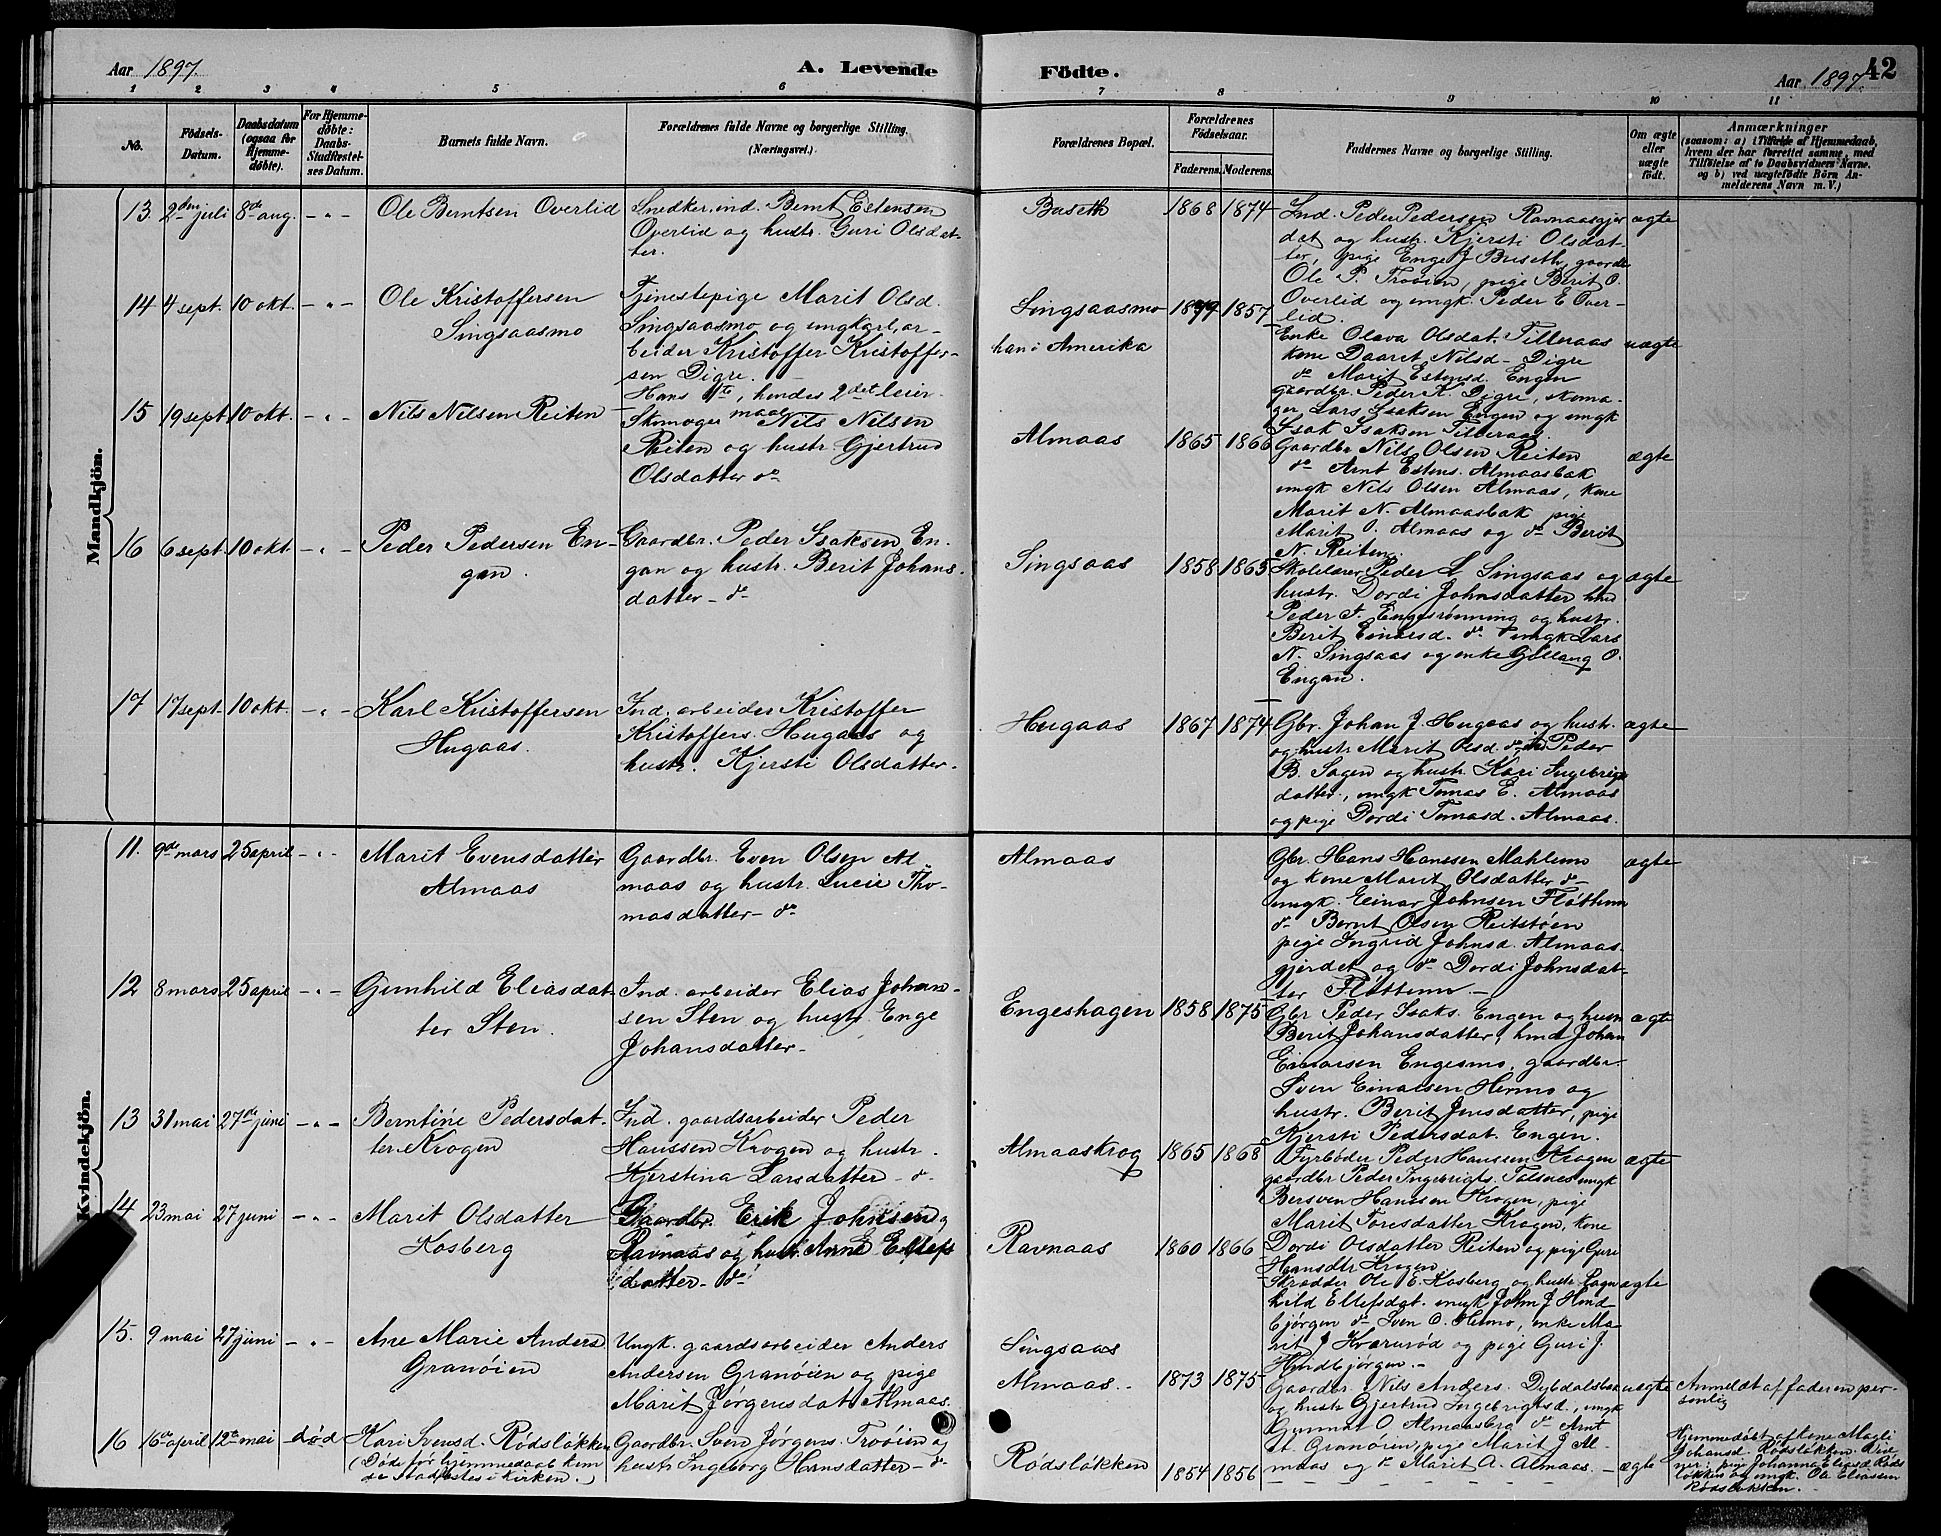 Aar 1897.
A. Levende
Födte.
Aar 1897.
42
1 2 3 4 5 6 7 8 9 10 11
No.
Födsels-
Datum.
Daabsdatum
(ogsaa for
Hjemme-
døbte).
For Hjemme-
døbte:
Daabs-
Stadfæstel-
ses Datum.
Barnets fulde Navn.
Forældrenes fulde Navne og borgerlige Stilling.
(Næringsvei.)
Forældrenes Bopæl.
Forældrenes
Födselsaar.
Faderens. Moderens.
Faddernes Navne og borgerlige Stilling.
Om ægte
eller
uægte
født.
Anmærkninger
(saasom: a) i Tilfælde af Hjemmedaab,
hvem der har forrettet samme, med
Tilföielse af to Daabsvidners Navne.
og b) ved uægtefödte Börn An-
melderens Navn m. V.)
Mandkjön.
13. 2den juli 8de aug. - " - Ole Berntsen Overlid
Snedker, ind. Bernt Estensen
Overlid og hustr. Guri Olsdat-
ter.
Buseth 1868 1874
Ind. Peder Pedersen Ravnaasgjer
det og hustr. Kjersti Olsdat-
ter, pige Enge J Buseth, gaardb
Ole P. Troøien, pige Berit O.
Overlid og umgk. Peder E Over-
lid.
ægte
14 4 sept. 10 okt. - " - Ole Kristoffersen
Singsaasmo
Tjenestepige Marit Olsd.
Singsaasmo og ungkarl, ar-
beider Kristoffer Kristoffer-
sen Digre.
Hans 1ste, hendes 2det leier-
maal
Singsaasmo 1857
han i Amerika
Enke Olava Olsdat. Tilleraas
kone Daaret Nilsd- Digre
do Marit Estensd. Engen
gaardbr. Peder K. Digre, skoma-
ger Lars Isaksen Engen og umgk
Isak Isaksen Tilleraas.
uægte
15 19 sept 10 okt. - " - Nils Nilsen Reiten
Skomager Nils Nilsen
Reiten og hustr. Gjertrud
Olsdatter do
Almaas 1865 1866
Gaardbr Nils Olsen Reiten
do Arnt Estens. Almaasbak
umgk Nils Olsen Almaas, kone
Marit N. Almaasbak, pige
Marit O. Almaas og do Berit
N. Reiten.
ægte
16 6 sept 10 okt. - " - Peder Pedersen En-
gan.
Gaardbr. Peder Isaksen En-
gan og hustr. Berit Johans-
datter - do
Singsaas 1858 1865
Skolelærer Peder L Singsaas og
hustr. Dordi Johnsdatter
Peder J. Engesrønning og hustr.
Berit Einarsd. do umgk Lars
N. Singsaas og enke O.
Engan.
ægte
17 17 sept. 10 okt. - " - Karl Kristoffersen
Hugaas.
Ind. arbeider Kristoffer
Kristoffers. Hugaas og
hustr. Kjersti Olsdatter.
Hugaas 1867 1874
Gbr. Johan J. Hugaas og hust.
og hustr Marit Olsd. do, Peder
B. Sagen og hustr. Kari Ingebrigts
datter, umgk Tomas E. Almaas
og pige Dordi Tomasd. Almaas.
ægte
Kvindekjön.
11. 9de mars 25 april - " - Marit Evensdatter
Almaas
Gaardbr. Even Olsen Al-
maas og hustr. Lucie Tho-
masdatter - do
Almaas
Gbr. Hans Hansen Mahlum
og kone Marit Olsdatter do
umgk. Einar Johnsen Fløttum
do Bernt Olsen Reitstøen
pige Ingrid Johnsd. Almaas-
gjerdet og do Dordi Johnsdat-
ter Fløttum. -
ægte
12 8 mars 25 april - " - Gunhild Eliasdat-
ter Sten.
Ind. arbeider Elias Johan-
sen Sten og hustr. Enge
Johansdatter-
Engeshagen 1858 1875
Gbr. Peder Isaks. Engen og hustr
Berit Johansdatter, hmd Johan
Einarsen Engesmo, gaardbr.
Sven Einarsen Hermo og
hustr. Berit Jensdatter, pige
Kjersti Pedersdat. Engen.
ægte
13 31 mai 27de juni - " - Berntine Pedersdat-
ter Krogen
Ind. gaardsarbeider Peder
Hanssen Krogen og hustr.
Kjerstina Larsdatter - do
Almaaskrog 1865 1868
Fyrbøder Peder Hansen Krogen
gaardbr Peder Ingebrigts. Talsnes umgk
Bersven Hanssen Krogen, pige
Marit Toresdatter Krogen, kone
Dordi Olsdatter Reiten og pige Guri
Hansdtr Krogen
ægte
14 23 mai 27 juni - " - Marit Olsdatter
Kosberg
Gaardbr. Erik Johnsen
Ravnaas og hustr. Anne Ellefs
datter - do
Ravnaas 1860 1866
Skrædder Ole E. Kosberg og hustr Ragn
hild Ellefsdat. umgk John J Hind
bjørgen do Sven O. Hermo, enke Ma-
rit J Kværnrød og pige Guri J.
Hindbjørgen. -
ægte
15. 9 mai 27 juni - " - Ane Marie Anders
Granøien
Ungk. gaardsarbeider Anders
Andersen Granøien og pige
Marit Jørgensdat. Almaas.
Singsaas
Almaas. - 1873 1875
Gaardbr. Nils Anders. Dybdalsbak
og hustr Gjertrud Ingebrigtsd., umgk
Gunnar O Almaasberg do Arnt
A. Granøien, pige Marit J. Al-
maas og do Marit A. Almaas. -
uægte
Anmeldt af faderen per-
sonlig
16 16de april 12te mai død Kari Svensd. Rödsløkken
(Døde før hjemmedaab kun-
de stadfæstes i kirken.)
Gaardbr. Sven Jørgens. Troøien og
hustr Ingeborg Hansdatter - do
Rødsløkken 1854 1856
ægte
Hjemmedøbt af kone Magli
Johansd. Rødsløkken. Vid-
ner: pige Johanna Eliasd. Røds
løkken og umgk. Ole Eliassen
Rødsløkken. -